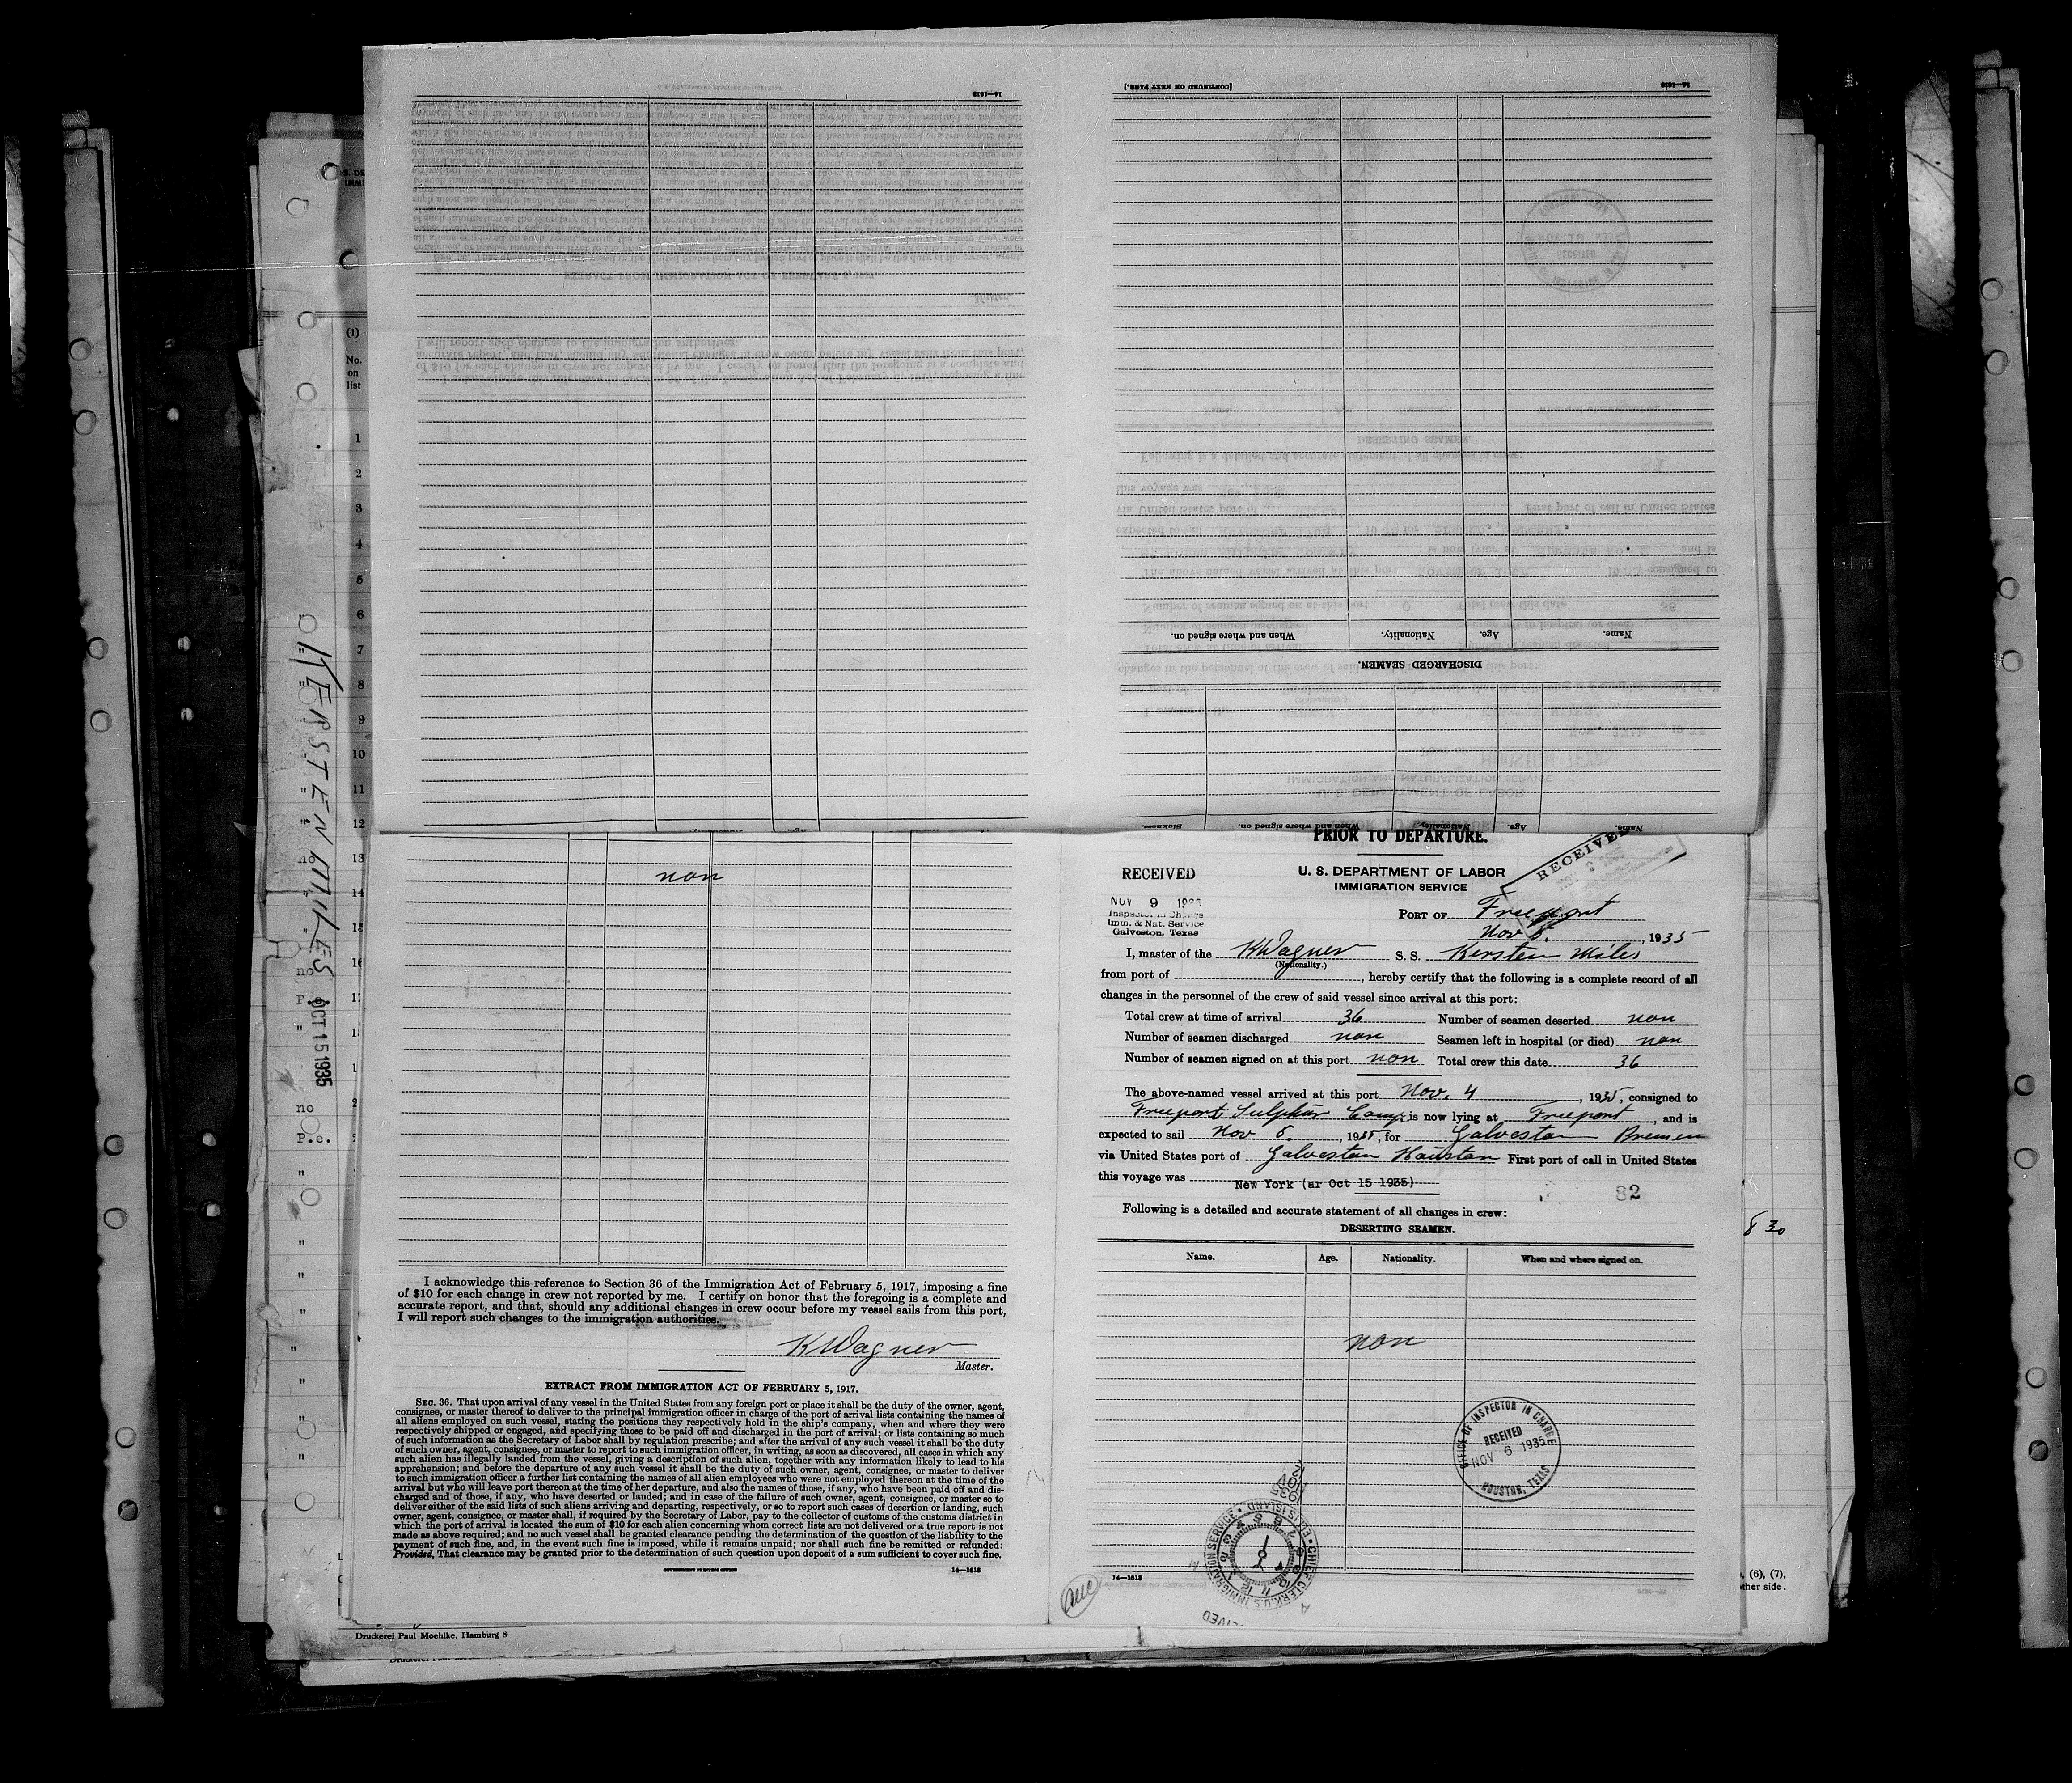 [CONTINUED ON NEXT PAGE.]
14—1613
14—1613
(1)
No.
on
list
1
2
3
4
5
6
7
8
9
10
11
12
13
14
15
16
KERSTEN MILES OCT 15 1935
no
no
P.e.
no
P.e.
Name.
Age.
Nationality.
When and where signed on.
DISCHARGED SEAMEN.
Name.
Age.
Nationality.
When and where signed on.
Sickness.
non
I acknowledge this reference to Section 36 of the Immigration Act of February 5, 1917, imposing a fine
of $10 for each change in crew not reported by me. I certify on honor that the foregoing is a complete and
accurate report, and that, should any additional changes in crew occur before my vessel sails from this port,
I will report such changes to the immigration authorities.
KWagner
Master.
EXTRACT FROM IMMIGRATION ACT OF FEBRUARY 5, 1917.
SEC. 36. That upon arrival of any vessel in the United States from any foreign port or place it shall be the duty of the owner, agent,
consignee, or master thereof to deliver to the principal immigration officer in charge of the port of arrival lists containing the names of
all aliens employed on such vessel, stating the positions they respectively hold in the ship's company, when and where they were
respectively shipped or engaged, and specifying those to be paid off and discharged in the port of arrival; or lists containing so much
of such information as the Secretary of Labor shall by regulation prescribe; and after the arrival of any such vessel it shall be the duty
of such owner, agent, consignee, or master to report to such immigration officer, in writing, as soon as discovered, all cases in which any
such alien has illegally landed from the vessel, giving a description of such alien, together with any information likely to lead to his
apprehension; and before the departure of any such vessel it shall be the duty of such owner, agent, consignee, or master to deliver
to such immigration officer a further list containing the names of all alien employees who were not employed thereon at the time of the
arrival but who will leave port thereon at the time of her departure, and also the names of those, if any, who have been paid off and dis-
charged and of those, if any, who have deserted or landed; and in case of the failure of such owner, agent, consignee, or master so to
deliver either of the said lists of such aliens arriving and departing, respectively, or so to report such cases of desertion or landing, such
owner, agent, consignee, or master shall, if required by the Secretary of Labor, pay to the collector of customs of the customs district in
which the port of arrival is located the sum of $10 for each alien concerning whom correct lists are not delivered or a true report is not
made as above required; and no such vessel shall be granted clearance pending the determination of the question of the liability to the
payment of such fine, and, in the event such fine is imposed, while it remains unpaid; nor shall such fine be remitted or refunded:
Provided, That clearance may be granted prior to the determination of such question upon deposit of a sum sufficient to cover such fine.
GOVERNMENT PRINTING OFFICE
14—1613
Druckerei Paul Moehlke, Hamburg 8
PRIOR TO DEPARTURE.
RECEIVED
U. S. DEPARTMENT OF LABOR
IMMIGRATION SERVICE
RECEIVED
NOV 9 1935
Inspector in Charge
Imm. & Nat. Service
Galveston, Texas
PORT OF Freeport
Nov 5., 1935
I, master of the KWagner S. S. Kersten Miles
(Nationality.)
from port of , hereby certify that the following is a complete record of all
changes in the personnel of the crew of said vessel since arrival at this port:
Total crew at time of arrival 36 Number of seamen deserted non
Number of seamen discharged non Seamen left in hospital (or died) non
Number of seamen signed on at this port non Total crew this date 36
The above-named vessel arrived at this port Nov. 4, 1935, consigned to
Freeport Sulphur Comp. is now lying at Freeport, and is
expected to sail Nov 5., 1935, for Galveston Bremen
via United States port of Galveston Houston First port of call in United States
this voyage was New York (ar Oct 15 1935)
82
Following is a detailed and accurate statement of all changes in crew:
DESERTING SEAMEN.
Name. Age. Nationality. When and where signed on.
non
OFFICE OF INSPECTOR IN CHARGE
RECEIVED
NOV 6 1935
HOUSTON, TEXAS
CHIEF CLERK U.S. IMMIGRATION SERVICE • ELLIS ISLAND
14—1613
8 30
(6), (7),
other side.